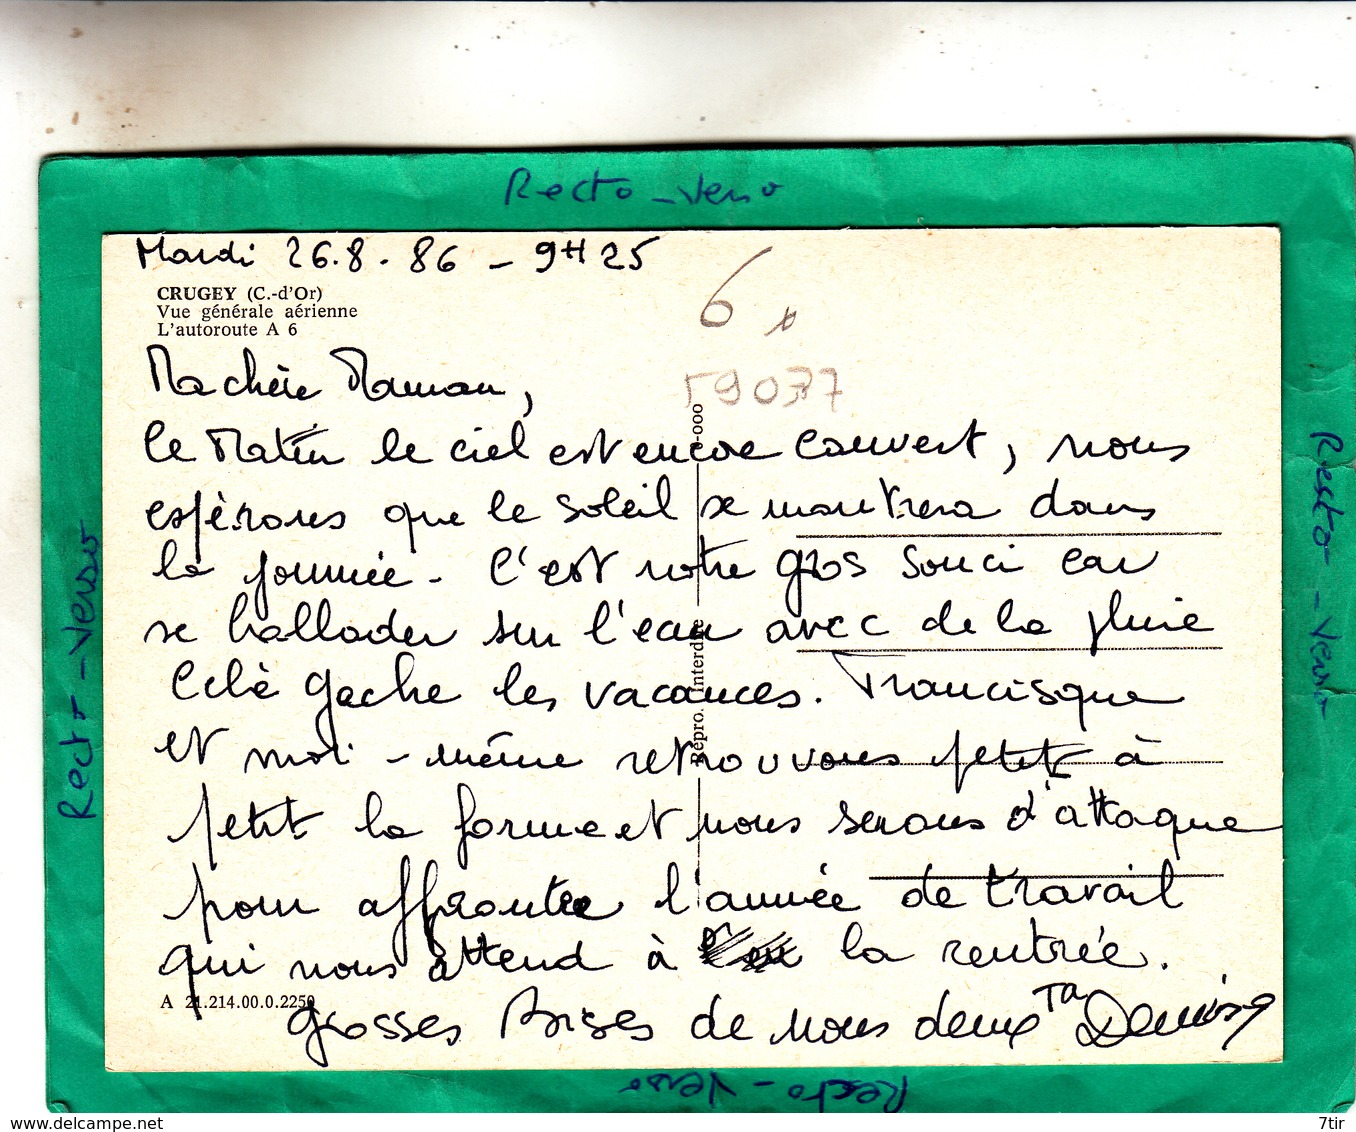 Recto-Verso
Mardi 26.8.86 - 9H25
CRUGEY (C.-d'Or)
Vue générale aérienne
L'autoroute A 6
6
59037
Ma chère Maman,
Ce Matin le ciel est encore couvert, nous
espérons que le soleil se montrera dans
la journée. C'est notre gros souci car
se ballader sur l'eau avec de la pluie
celà gache les vacances. Francisque
et moi-même retrouvons petit à
petit la forme et nous serons d'attaque
pour affronter l'année de travail
qui nous attend à la rentrée.
A 21.214.00.0.2250
Grosses Bises de nous deux Ta Denise
Repro. Interdite
Recto-Verso
Recto-Verso
Recto-Verso
www.delcampe.net
7tir